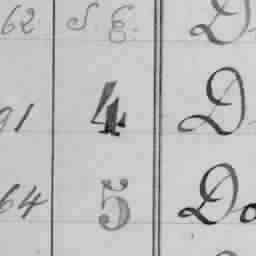 62 S. E. D
91 4 D
64 5 Do